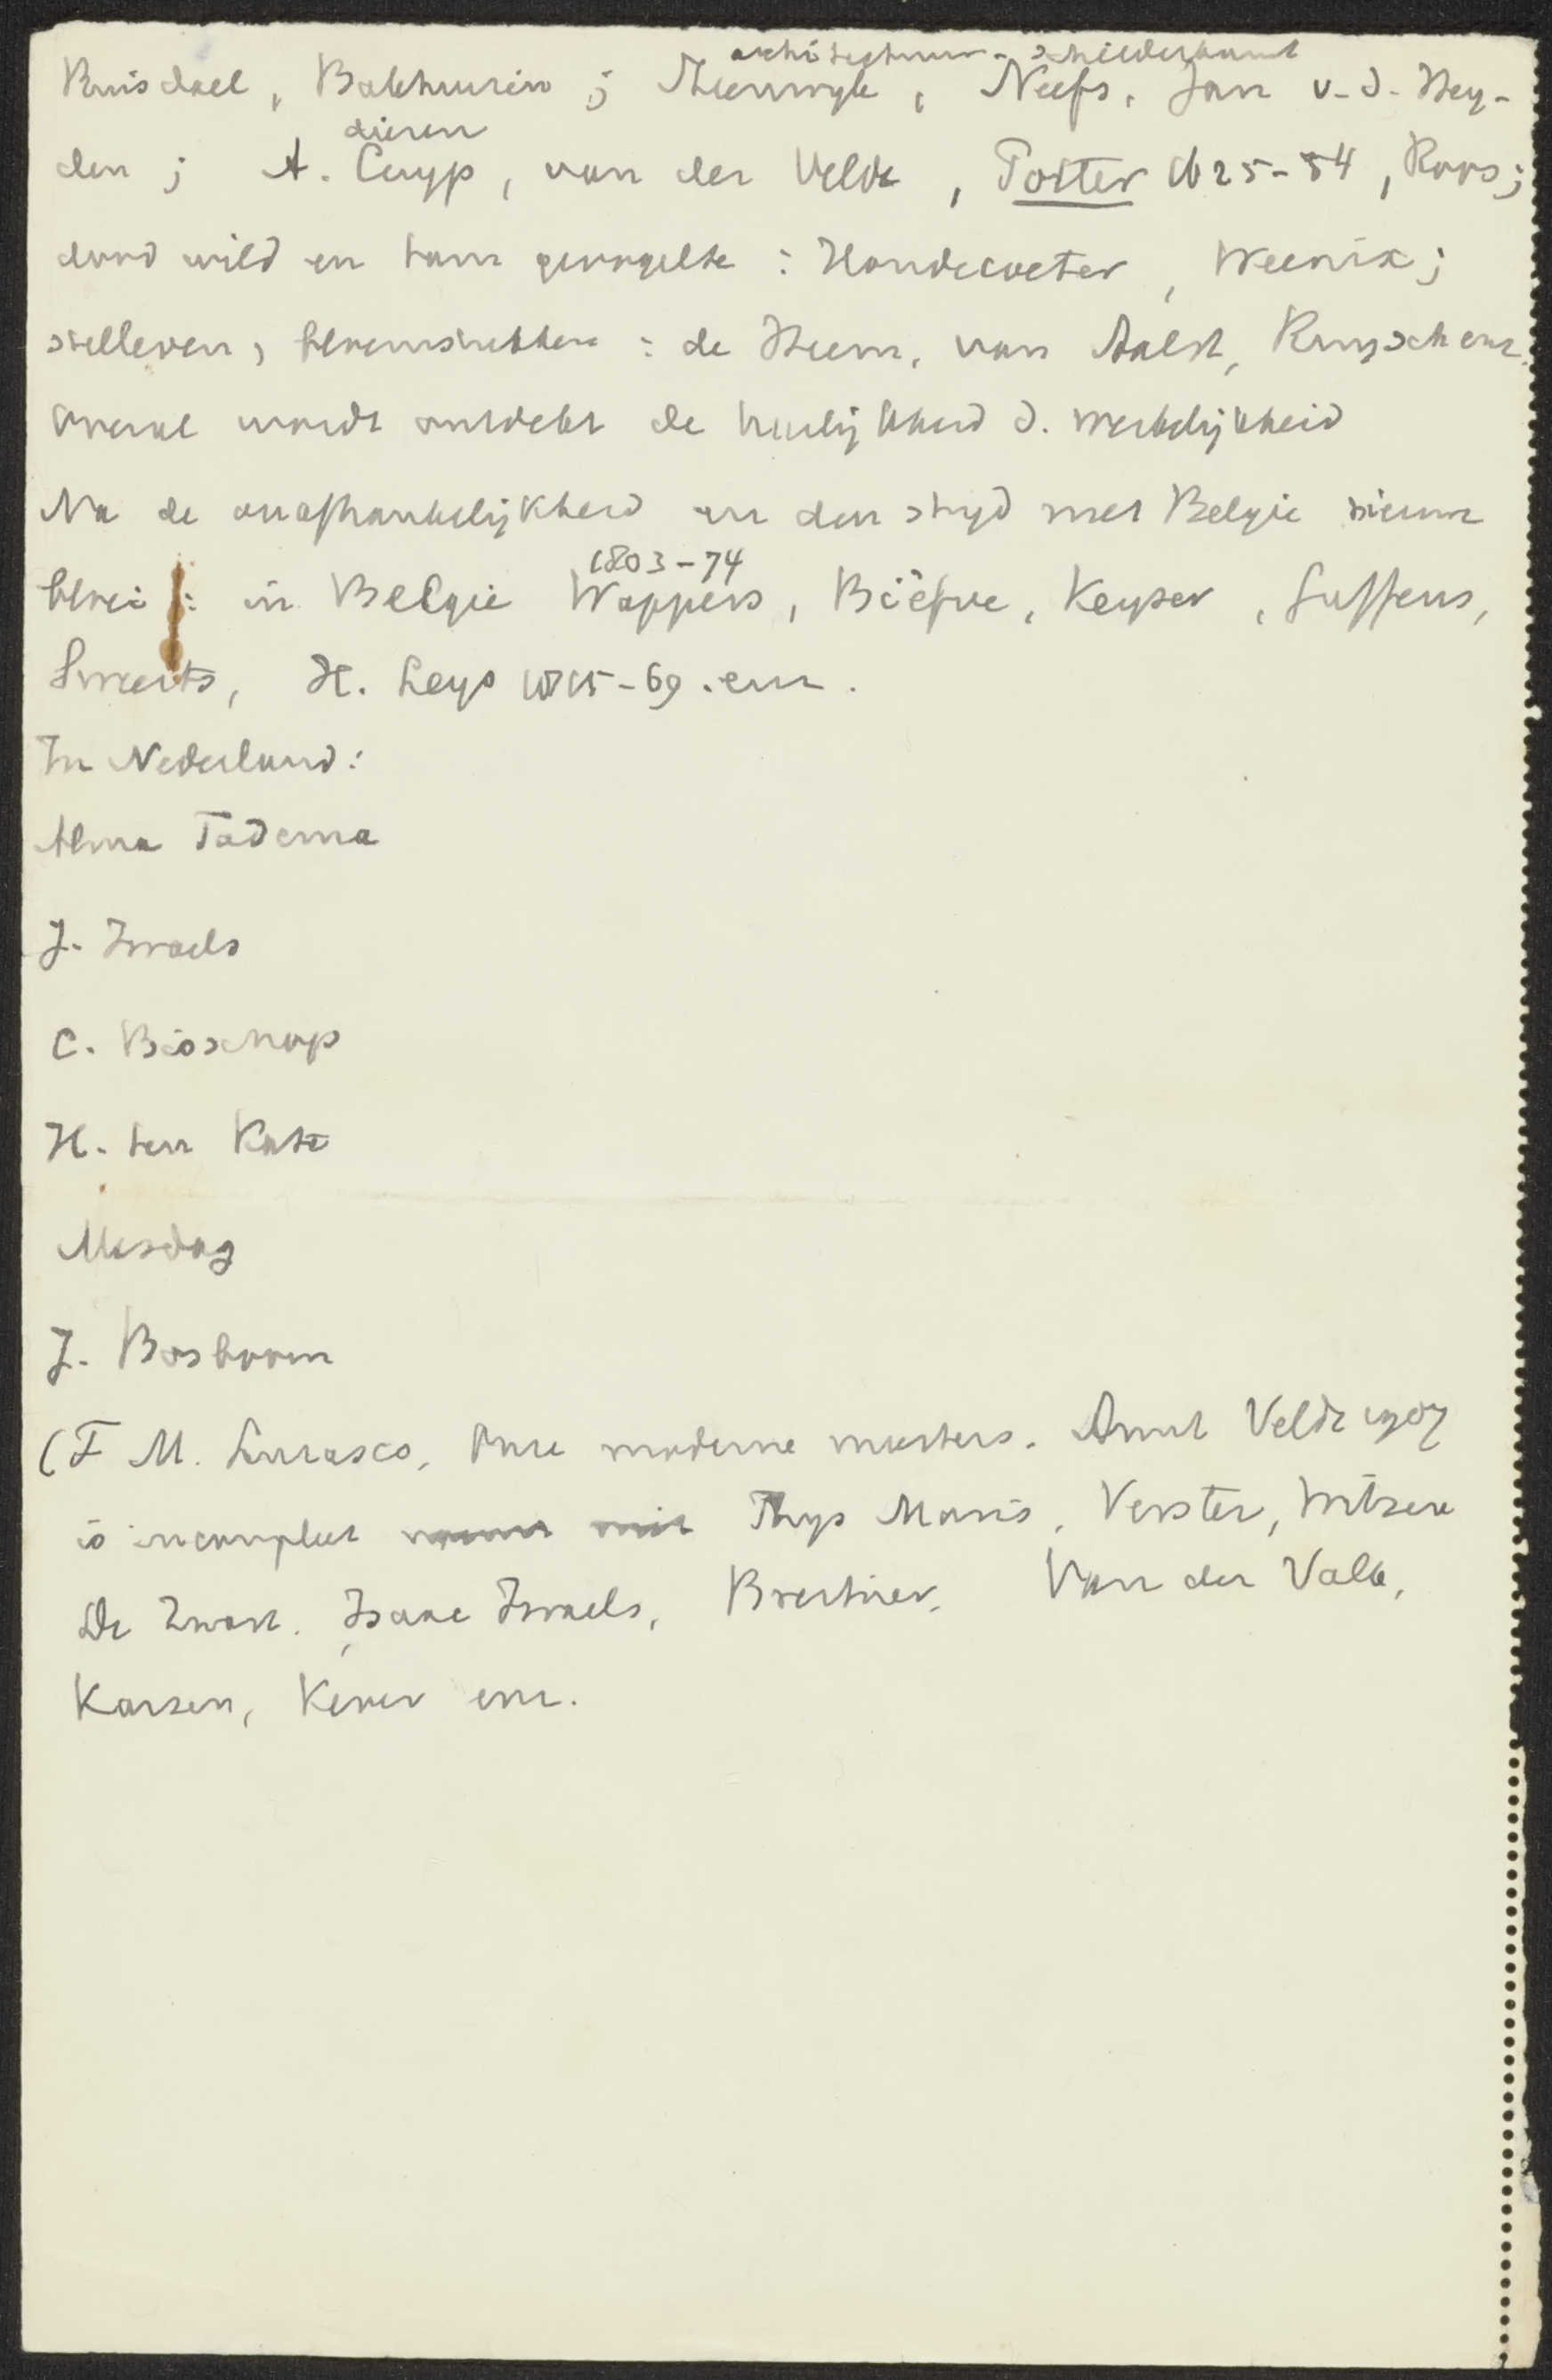 architectuur-schilderkunst
Ruisdael, Bakhuizen; Steenwyk, Neefs, Jan v.d. Hey-
dieren
den; A. Cuyp, van der Velde, Potter 1625-54, Roos;
dood wild en tam gevogelte: Hondecoeter, Weenix;
stilleven, bloemstukken: de Heem, van Aalst, Ruysch enz.
Overal wordt ontdekt de heerlijkheid d. werkelijkheid
Na de onafhankelijkheid en den stryd met Belgie nieuwe
1803-74
bloei: in Belgie Wappers, Bièfve, Keyser,
H. Leys 1815-69. enz.
In Nederland:
Alma Tadema
J. Israels
C. Bisschop
H. ten Kate
Mesdag
J. Bosboom
(F M. Lurasco, Onze moderne meesters. Amst Veldt 1907
is incompleet Thys Maris, Verster, Witsen
De Zwart. Isaac Israels, Breitner, Van der Valk,
Karsen, Kever enz.